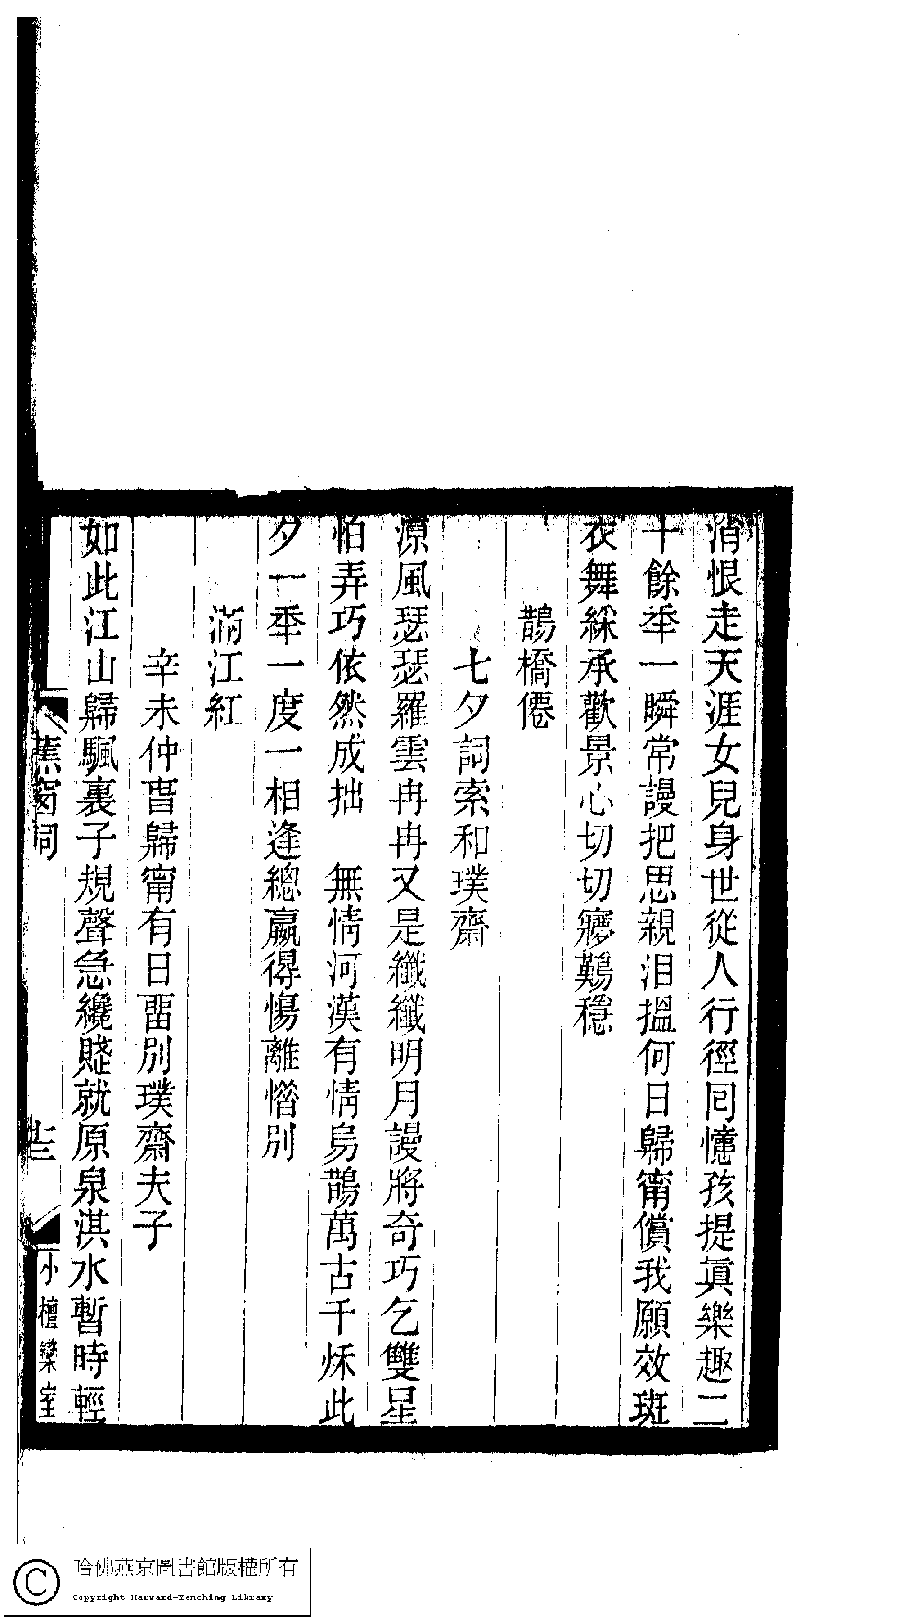 消恨走天涯女兒身世從人行徑囘憶孩提眞樂趣二
十餘秊一瞬常謾把思親泪搵何日歸甯償我願效斑
衣舞綵承歡景心切切寱鷄穩
鵲橋僊
七夕詞索和璞齋
涼風瑟瑟羅雲冉冉又是纖纖明月謾將奇巧乞雙星
怕弄巧依然成拙　無情河漢有情烏鵲萬古千秌此
夕一秊一度一相逢總嬴得傷離惜別
滿江紅
辛未仲萅歸甯有日畱別璞齋夫子
如此江山歸颿裏子規聲急纔賤就原泉淇水暫時輕
蕉窗詞
十二
小檀欒室
哈佛燕京圖書館版權所有
Copyright Harvard-Yenching Library